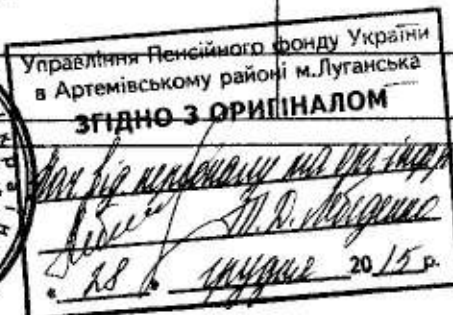 Управління Пенсійного фонду України
в Артемівському районі м.Луганська
ЗГІДНО З ОРИГІНАЛОМ
від персоналу
Т.Д.
"28" грудня 2015 р.